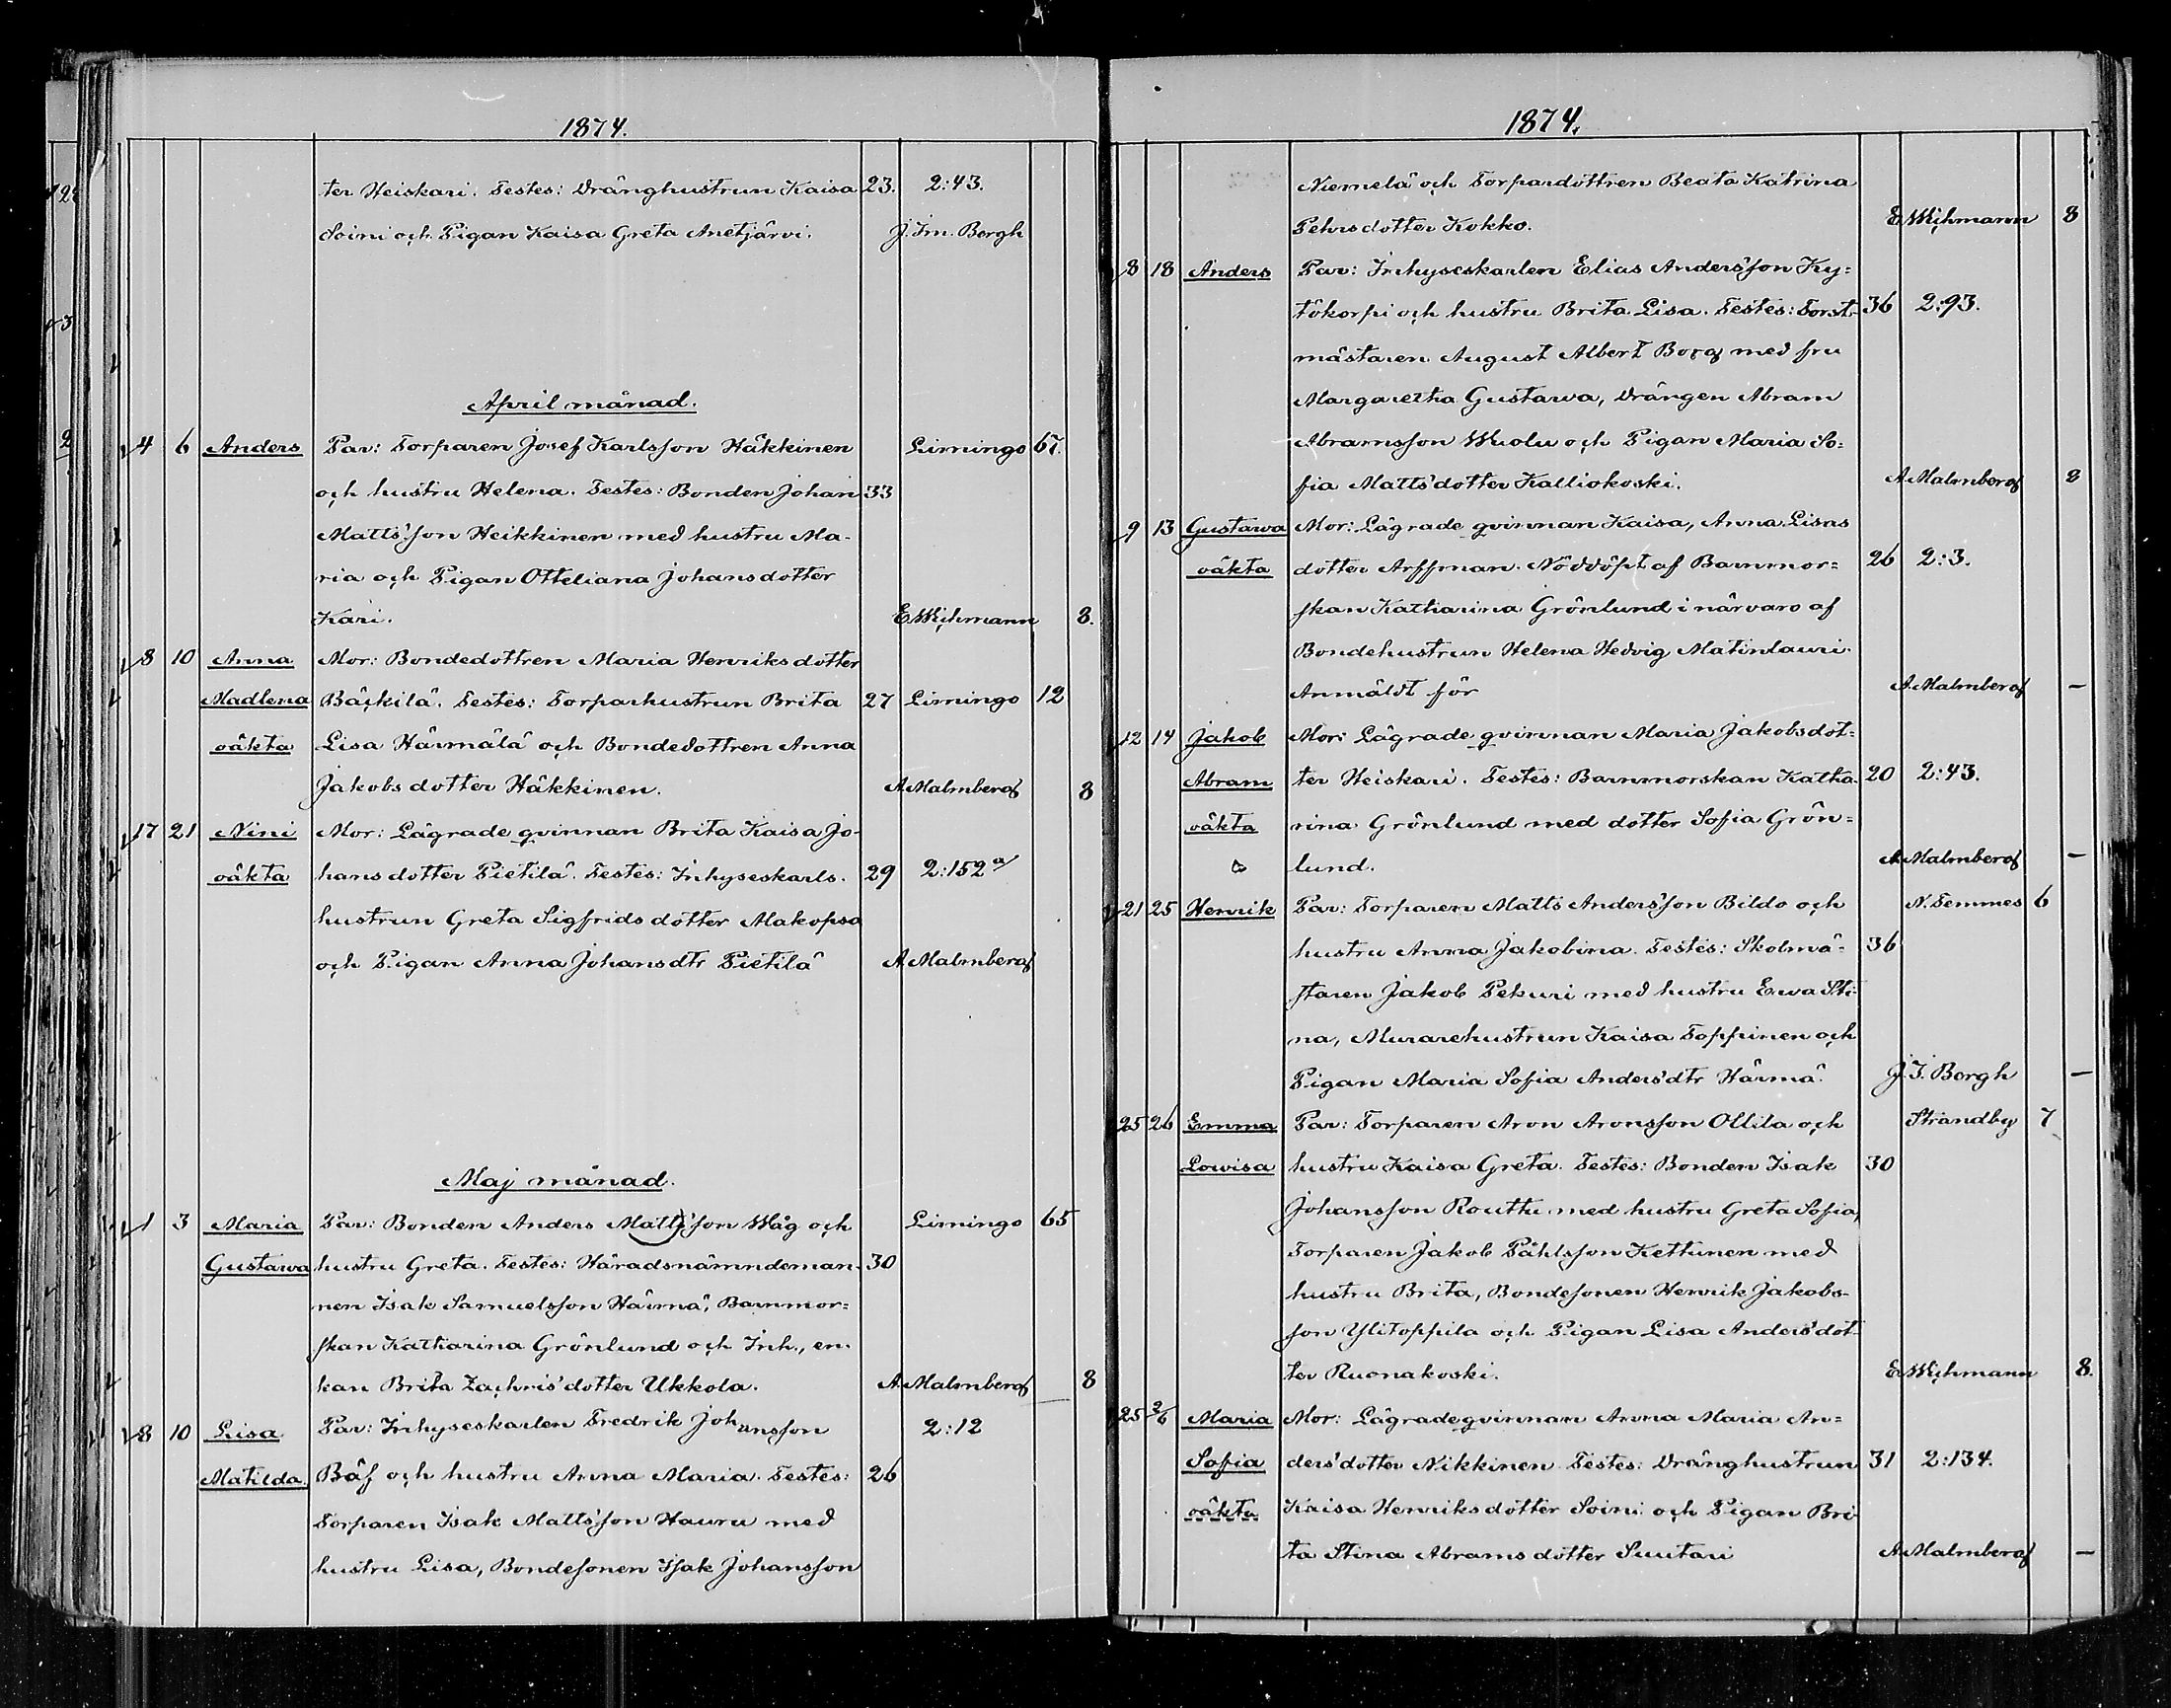 1874.
ter Heiskari. Testes: Dränghustrun Kaisa 23. 2:43.
Soini och Pigan Kaisa Greta Anetjärvi. J. Im. Borgh
April månad.
4 6 Anders Par: Torparen Josef Karlsson Häkkinen Limingo 67.
och hustru Helena. Testes: Bonden Johan 33
Mattsson Heikkinen med hustru Ma-
ria och Pigan Otteliana Johansdotter
Kari. E Wichmann 8.
8 10 Anna Mor: Bondedottren Maria Henriksdotter
Madlena Bäckilä. Testes: Torparhustrun Brita 27 Limingo 12
oäkta Lisa Härmälä och Bondedottren Anna
Jakobsdotter Häkkinen. A Malmberg 8
17 21 Nini Mor: Lägrade qvinnan Brita Kaisa Jo-
oäkta hansdotter Pietilä. Testes: Inhyseskarls- 29 2:152 a/
hustrun Greta Sigfridsdotter Makopsa
och Pigan Anna Johansdtr Pietilä A Malmberg
Maj månad.
1 3 Maria Par: Bonden Anders Mattsson Wåg och Limingo 65
Gustawa hustru Greta. Testes: Häradsnämndeman- 30
nen Isak Samuelsson Härmä, Barnmor=
skan Katharina Grönlund och Inh., en-
kan Brita Zachrisdotter Ukkola. A Malmberg 8
8 10 Lisa Par: Inhyseskarlen Fredrik Johansson 2:12
Matilda. Bäf och hustru Anna Maria. Testes: 26
Torparen Isak Mattsson Hauru med
hustru Lisa, Bondesonen Isak Johansson
1874.
Niemelä och Torpardottren Beata Katrina
Pehrsdotter Kokko. E Wichmann 8
8 18 Anders Par: Inhyseskarlen Elias Andersson Ky=
tökorpi och hustru Brita Lisa. Testes: Forst- 36 2:93.
mästaren August Albert Borg med fru
Margaretha Gustawa, Drängen Abram
Abramsson Wuolu och Pigan Maria So=
fia Mattsdotter Kalliokoski. A Malmberg 8
9 13 Gustawa Mor: Lägrade qvinnan Kaisa, Anna Lisas
oäkta dotter Arffman. Nöddöpt af Barnmor= 26 2:3.
skan Katharina Grönlund i närvaro af
Bondehustrun Helena Hedvig Matinlauri.
Anmäldt för A Malmberg —
12 14 Jakob Mor: Lägrade qvinnan Maria Jakobsdot=
Abram ter Heiskari. Testes: Barnmorskan Katha- 20 2:43.
oäkta rina Grönlund med dotter Sofia Grön=
lund. A Malmberg —
21 25 Henrik Par: Torparen Matts Andersson Bildo och N. Temmes 6
hustru Anna Jakobina. Testes: Skolmä- 36
staren Jakob Pekuri med hustru Ewa Sti-
na, Murarehustrun Kaisa Toppinen och
Pigan Maria Sofia Andersdtr Härmä. J. I. Borgh —
25 26 Emma Par: Torparen Aron Aronsson Ollila och Strandby 7
Lowisa hustru Kaisa Greta. Testes: Bonden Isak 30
Johansson Routtu med hustru Greta Sofia,
Torparen Jakob Påhlsson Kettunen med
hustru Brita, Bondesonen Henrik Jakobs-
son Ylitoppila och Pigan Lisa Andersdot-
ter Ruonakoski. E Wichmann 8.
25 2/6 Maria Mor: Lägrade qvinnan Anna Maria An=
Sofia dersdotter Nikkinen Testes: Dränghustrun 31 2:134.
oäkta Kaisa Henriksdotter Soini och Pigan Bri
ta Stina Abramsdotter Suutari A Malmberg —